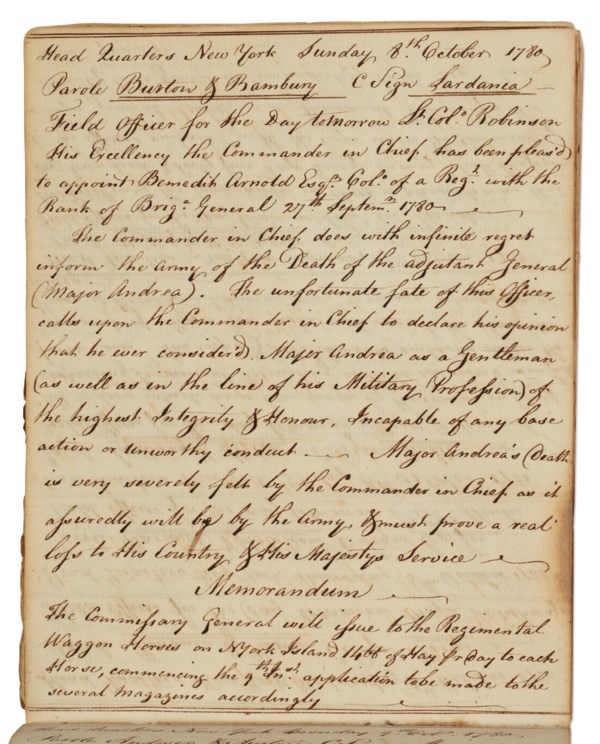 Head Quarters New York Sunday 8.th October 1780
Parole Burton & Rambury C Sign Sardania
Field Officer for the Day tomorrow Lt. Colo. Robinson
His Excellency the Commander in Chief has been pleas'd
to appoint Benedih Arnold Esqr. Colo. of a Regt. with the
Rank of Brigr. General 27th Septemr. 1780
The Commander in Chief does with infinite regret
inform the Army of the Death of the adjutant General
(Major Andrea). The unfortunate fate of this Officer,
calls upon the Commander in Chief to declare his opinion
that he ever consider'd, Major Andrea as a Gentleman
(as well as in the line of his Military Profession) of
the highest Integrity & Honour, Incapable of any base
action or unworthy conduct Major Andrea's Death
is very severely felt by the Commander in Chief as it
assuredly will by by the Army, & must prove a real
loss to His Country & His Majestys Service
Memorandum
The Commissary General will issue to the Regimental
Waggon Horses on N York Island 14lb of Hay pr Day to each
Horse, commencing the 9th Inst. application tobe made to the
several Magazines accordingly
New York Monday 9 1780